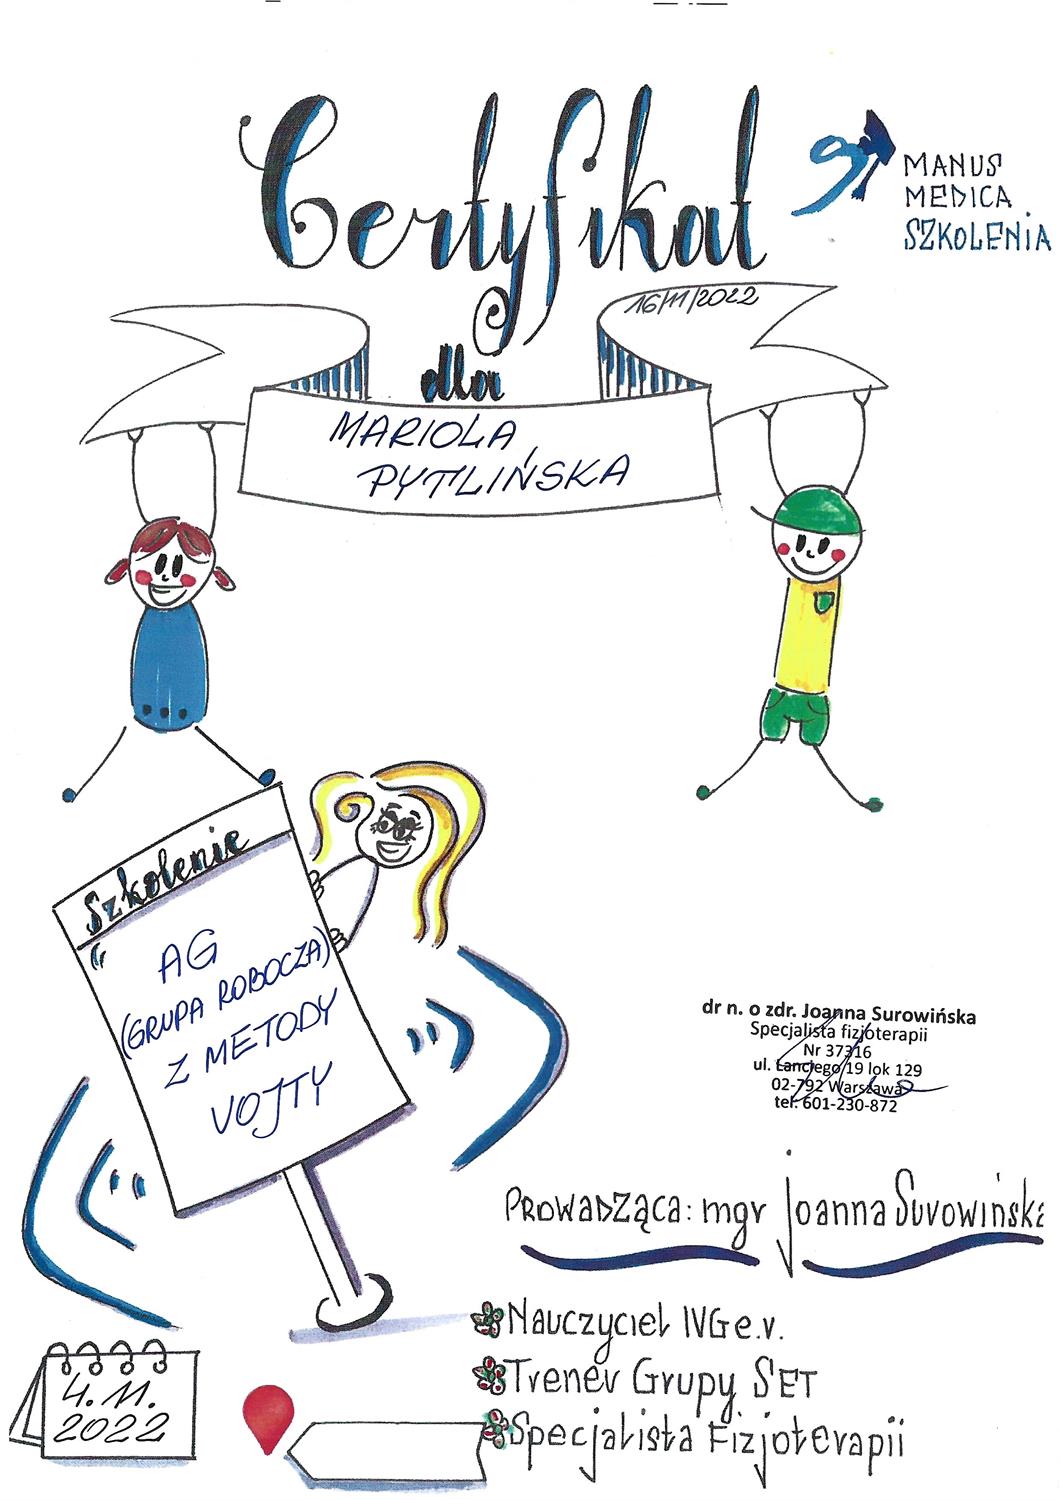 Certyfikat
MANUS
MEDICA
SZKOLENIA
16/11/2022
dla
MARIOLA
PYTLIŃSKA
Szkolenie
AG
(GRUPA ROBOCZA)
Z METODY
VOJTY
dr n. o zdr. Joanna Surowińska
Specjalista fizjoterapii
Nr 37316
ul. Lanciego 19 lok 129
02-792 Warszawa
tel. 601-230-872
PROWADZĄCA: mgr Joanna Surowińska
Nauczyciel IVG e.v.
Trener Grupy SET
Specjalista Fizjoterapii
4.11.
2022